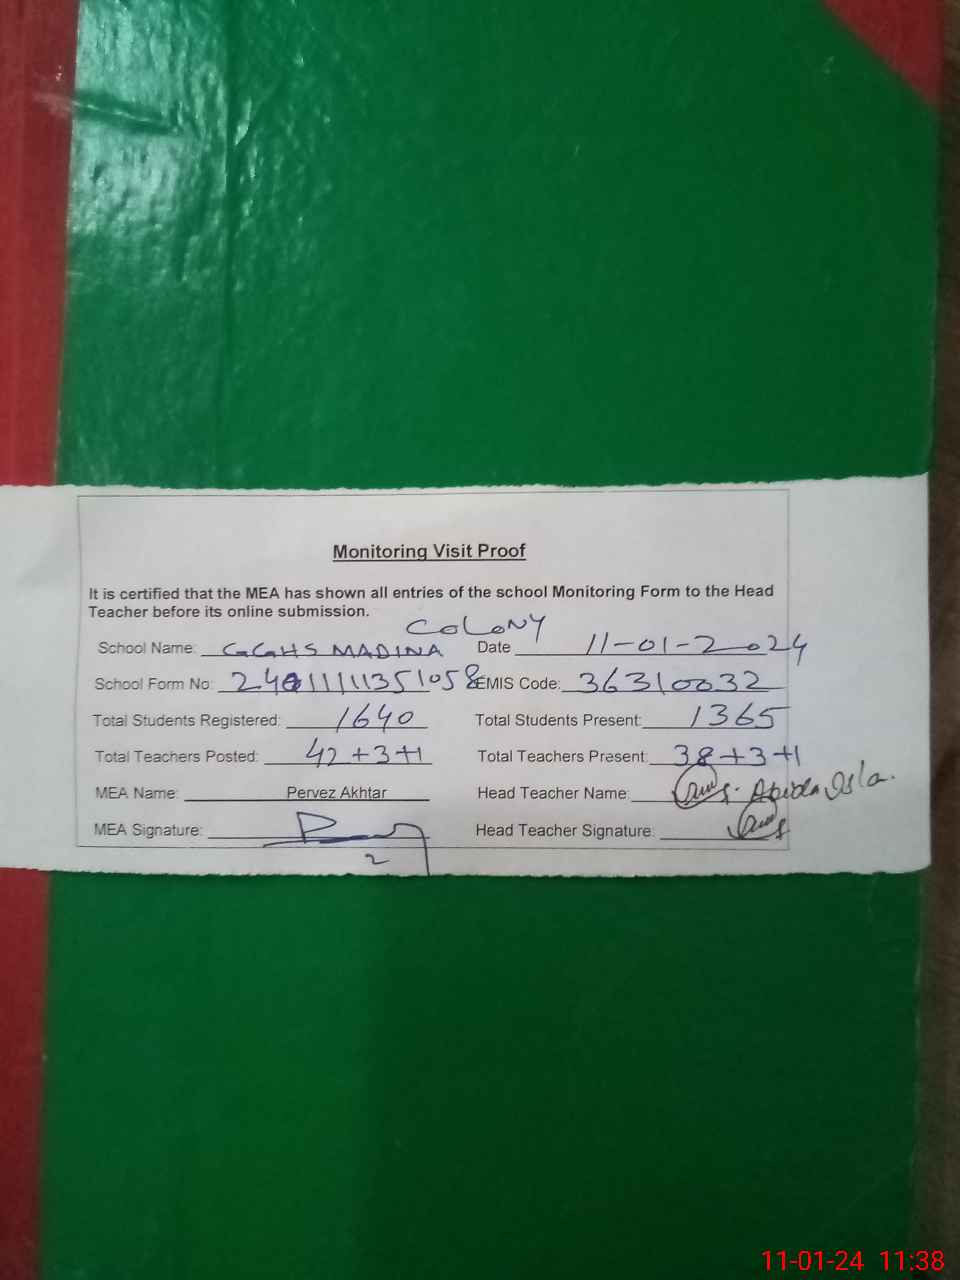 Monitoring Visit Proof
It is certified that the MEA has shown all entries of the school Monitoring Form to the Head
Teacher before its online submission.
COLONY
School Name: GGHS MADINA Date 11-01-2024
School Form No: 24011111351058 EMIS Code: 36310032
Total Students Registered: 1640 Total Students Present: 1365
Total Teachers Posted: 42+3+1 Total Teachers Present: 38+3+1
MEA Name: Pervez Akhtar Head Teacher Name: Abida Isla.
MEA Signature: Head Teacher Signature:
2
11-01-24 11:38